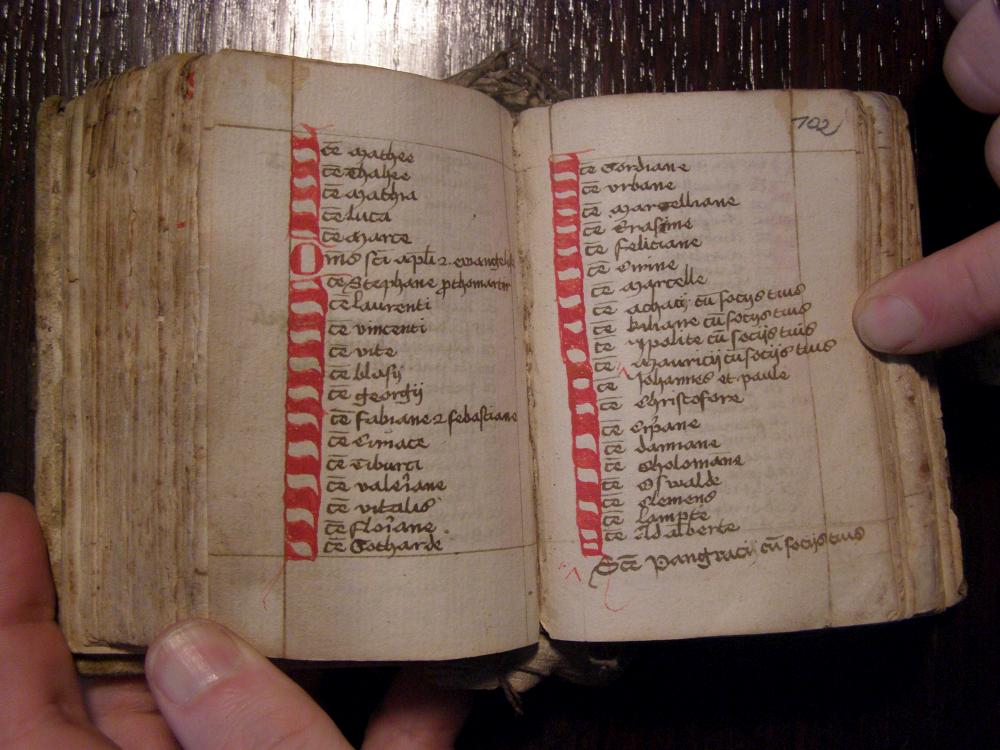 Sc̄e Mathee
Sc̄e Thadee
Sc̄e Mathia
Sc̄e Luca
Sc̄e Marce
Om̄s sc̄i apl̄i ⁊ ewangeliste
Sc̄e Stephane pthomartir
Sc̄e laurenti
Sc̄e vincenti
Sc̄e vite
Sc̄e blasij
Sc̄e georgij
Sc̄e fabiane ⁊ sebastiane
Sc̄e Ciriace
Sc̄e Tiburci
Sc̄e valeriane
Sc̄e vitalis
Sc̄e Floriane
Sc̄e Gotharde
102
Sc̄e Gordiane
Sc̄e vrbane
Sc̄e Marcelliane
Sc̄e Erasime
Sc̄e feliciane
Sc̄e
Sc̄e Marcelle
Sc̄e achacij cū socijs tuis
Sc̄e kiliane cū socijs tuis
Sc̄e ypolite cū socijs tuis
Sc̄e Mauricij cū socijs tuis
Johannes et paule
Sc̄e Christofore
Sc̄e Cipane
Sc̄e damiane
Sc̄e Cholomane
Sc̄e Oswalde
Sc̄e Clemens
Sc̄e lampte
Sc̄e Adalberte
Sc̄e Pangracij cū socijs tuis